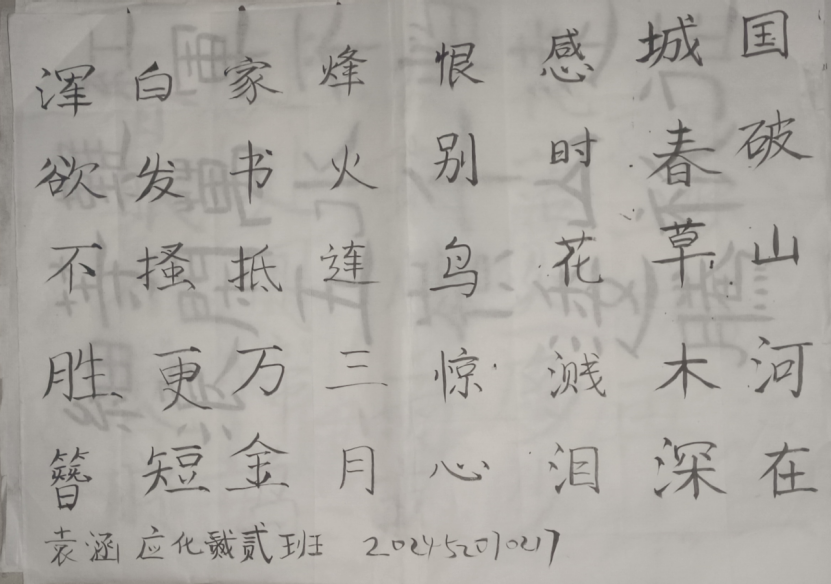 国破山河在
城春草木深
感时花溅泪
恨别鸟惊心
烽火连三月
家书抵万金
白发搔更短
浑欲不胜簪
袁涵 应化贰班 202452070217